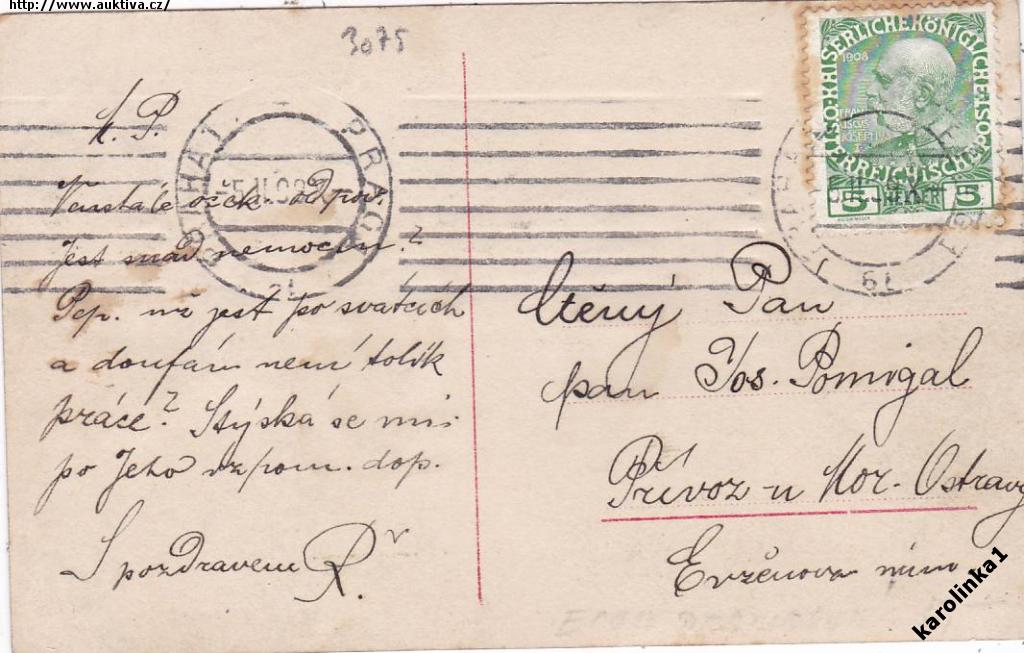 http://www.auktiva.cz/
3075
M. P.
Neustále oček. odpov.
Jest snad nemocen?
Pep. už jest po svátcích
a doufám není tolik
práce? Stýská se mi
po Jeho vzpom. dop.
S pozdravem R
PRAHA 1 PRAG
KAISERLICHE KÖNIGLICHE
ÖSTERREICHISCHE POST
1908
FRANCISCUS JOSEPH I
5 HELLER 5
Ctěný Pan
pan Jos. Pomigal
Přívoz-u Mor. Ostravy
Evženova
karolinka1